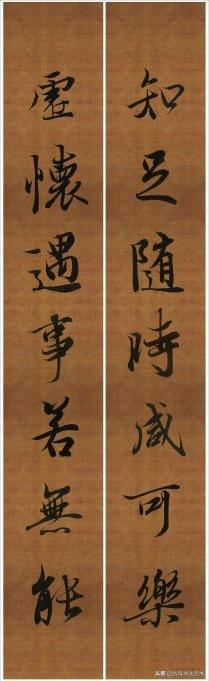 知足随時咸可樂
虛懷遇事若無能
头条 @古风书法艺术